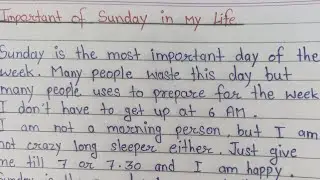 Important of Sunday in My Life
Sunday is the most important day of the
week. Many people waste this day but
many people uses to prepare for the week
I don't have to get up at 6 AM.
I am not a morning person, but I am
not crazy long sleeper either. Just give
me till 7 or 7.30 and I am happy.